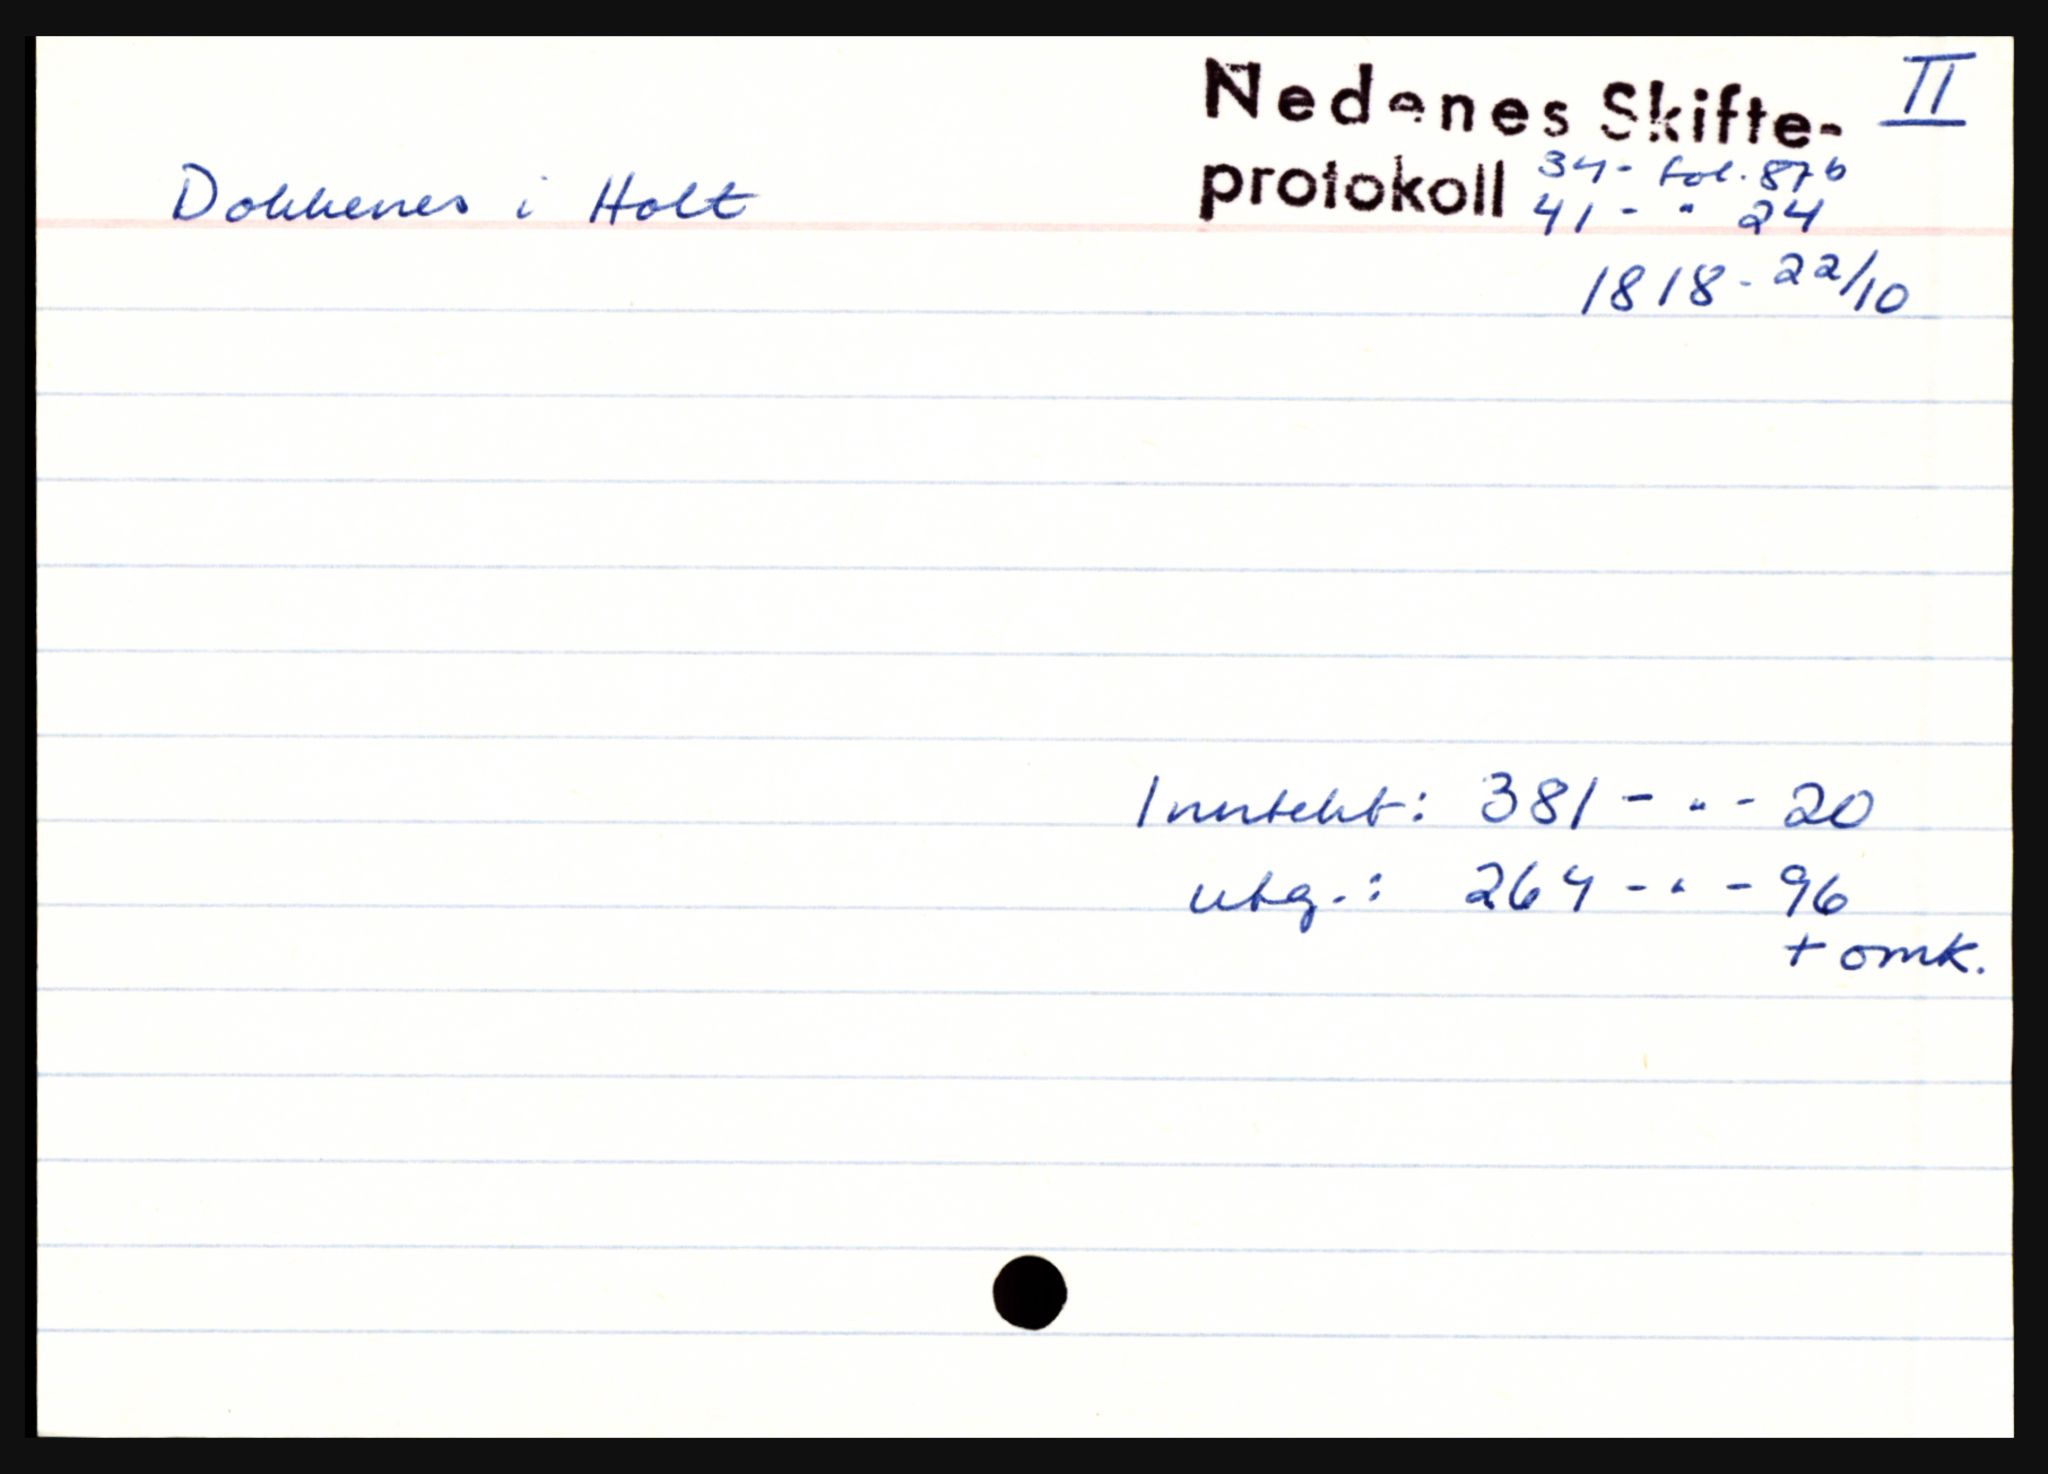 Nedenes Skifte- II
Dokkenes i Holt
protokoll 34 - fol. 87b
41 - " 24
1818 - 22/10
Inntekt: 381 - " - 20
utg.: 264 - " - 96
+ omk.